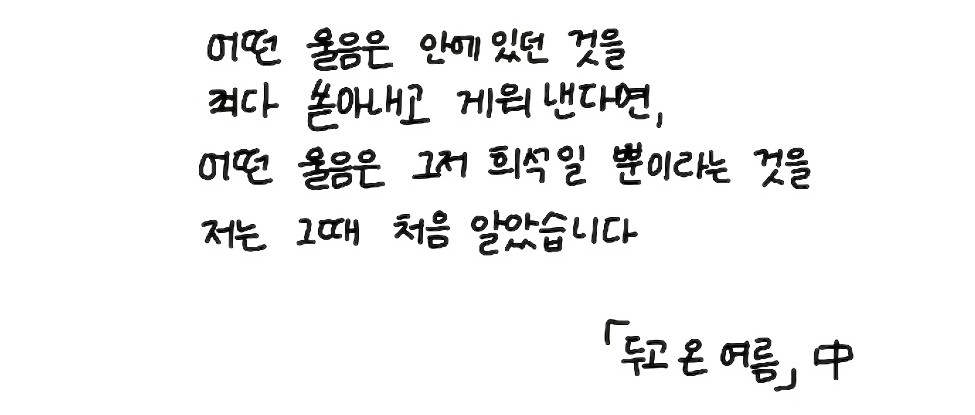 어떤 울음은 안에 있던 것을
죄다 쏟아내고 게워 낸다면,
어떤 울음은 그저 희석일 뿐이라는 것을
저는 그때 처음 알았습니다
「두고 온 여름」 中